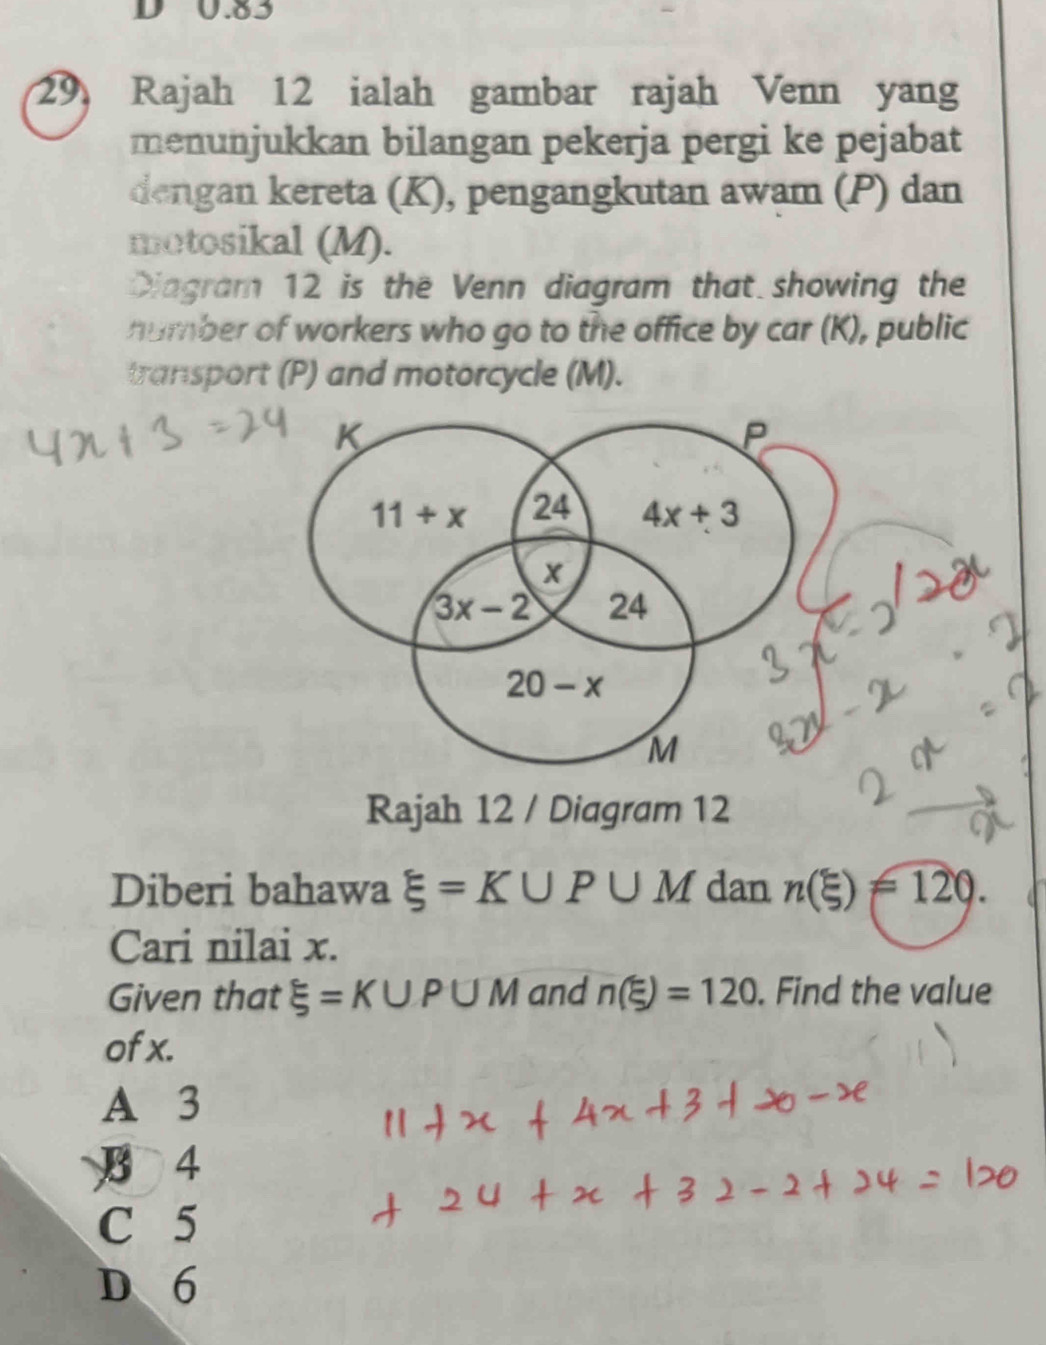 D 0.83
29. Rajah 12 ialah gambar rajah Venn yang
menunjukkan bilangan pekerja pergi ke pejabat
dengan kereta (K), pengangkutan awam (P) dan
motosikal (M).
Diagram 12 is the Venn diagram that showing the
number of workers who go to the office by car (K), public
transport (P) and motorcycle (M).
4x + 3 = 24
K
P
11 + x
24
4x + 3
x
3x – 2
24
20 – x
M
120
3x - 2
3x - x
2x
Rajah 12 / Diagram 12
Diberi bahawa ξ = K ∪ P ∪ M dan n(ξ) = 120.
Cari nilai x.
Given that ξ = K ∪ P ∪ M and n(ξ) = 120. Find the value
of x.
A 3
B 4
C 5
D 6
11 + x + 4x + 3 + 20 - x
+ 24 + x + 3x - 2 + 24 = 120